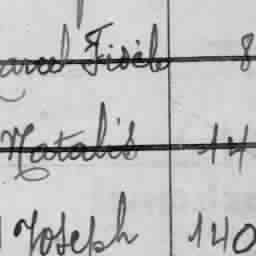 Marcel Fidèle 8
Natalis 14
Joseph 140